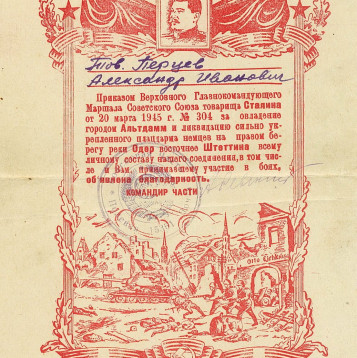 Тов. Перцев
Александр Иванович
Приказом Верховного Главнокомандующего
Маршала Советского Союза товарища Сталина
от 20 марта 1945 г. № 304 за овладение
городом Альтдамм и ликвидацию сильно ук-
репленного плацдарма немцев на правом бе-
регу реки Одер восточнее Штеттина всему
личному составу нашего соединения, в том чис-
ле и Вам, принимавшему участие в боях,
объявлена благодарность.
КОМАНДИР ЧАСТИ
Otto